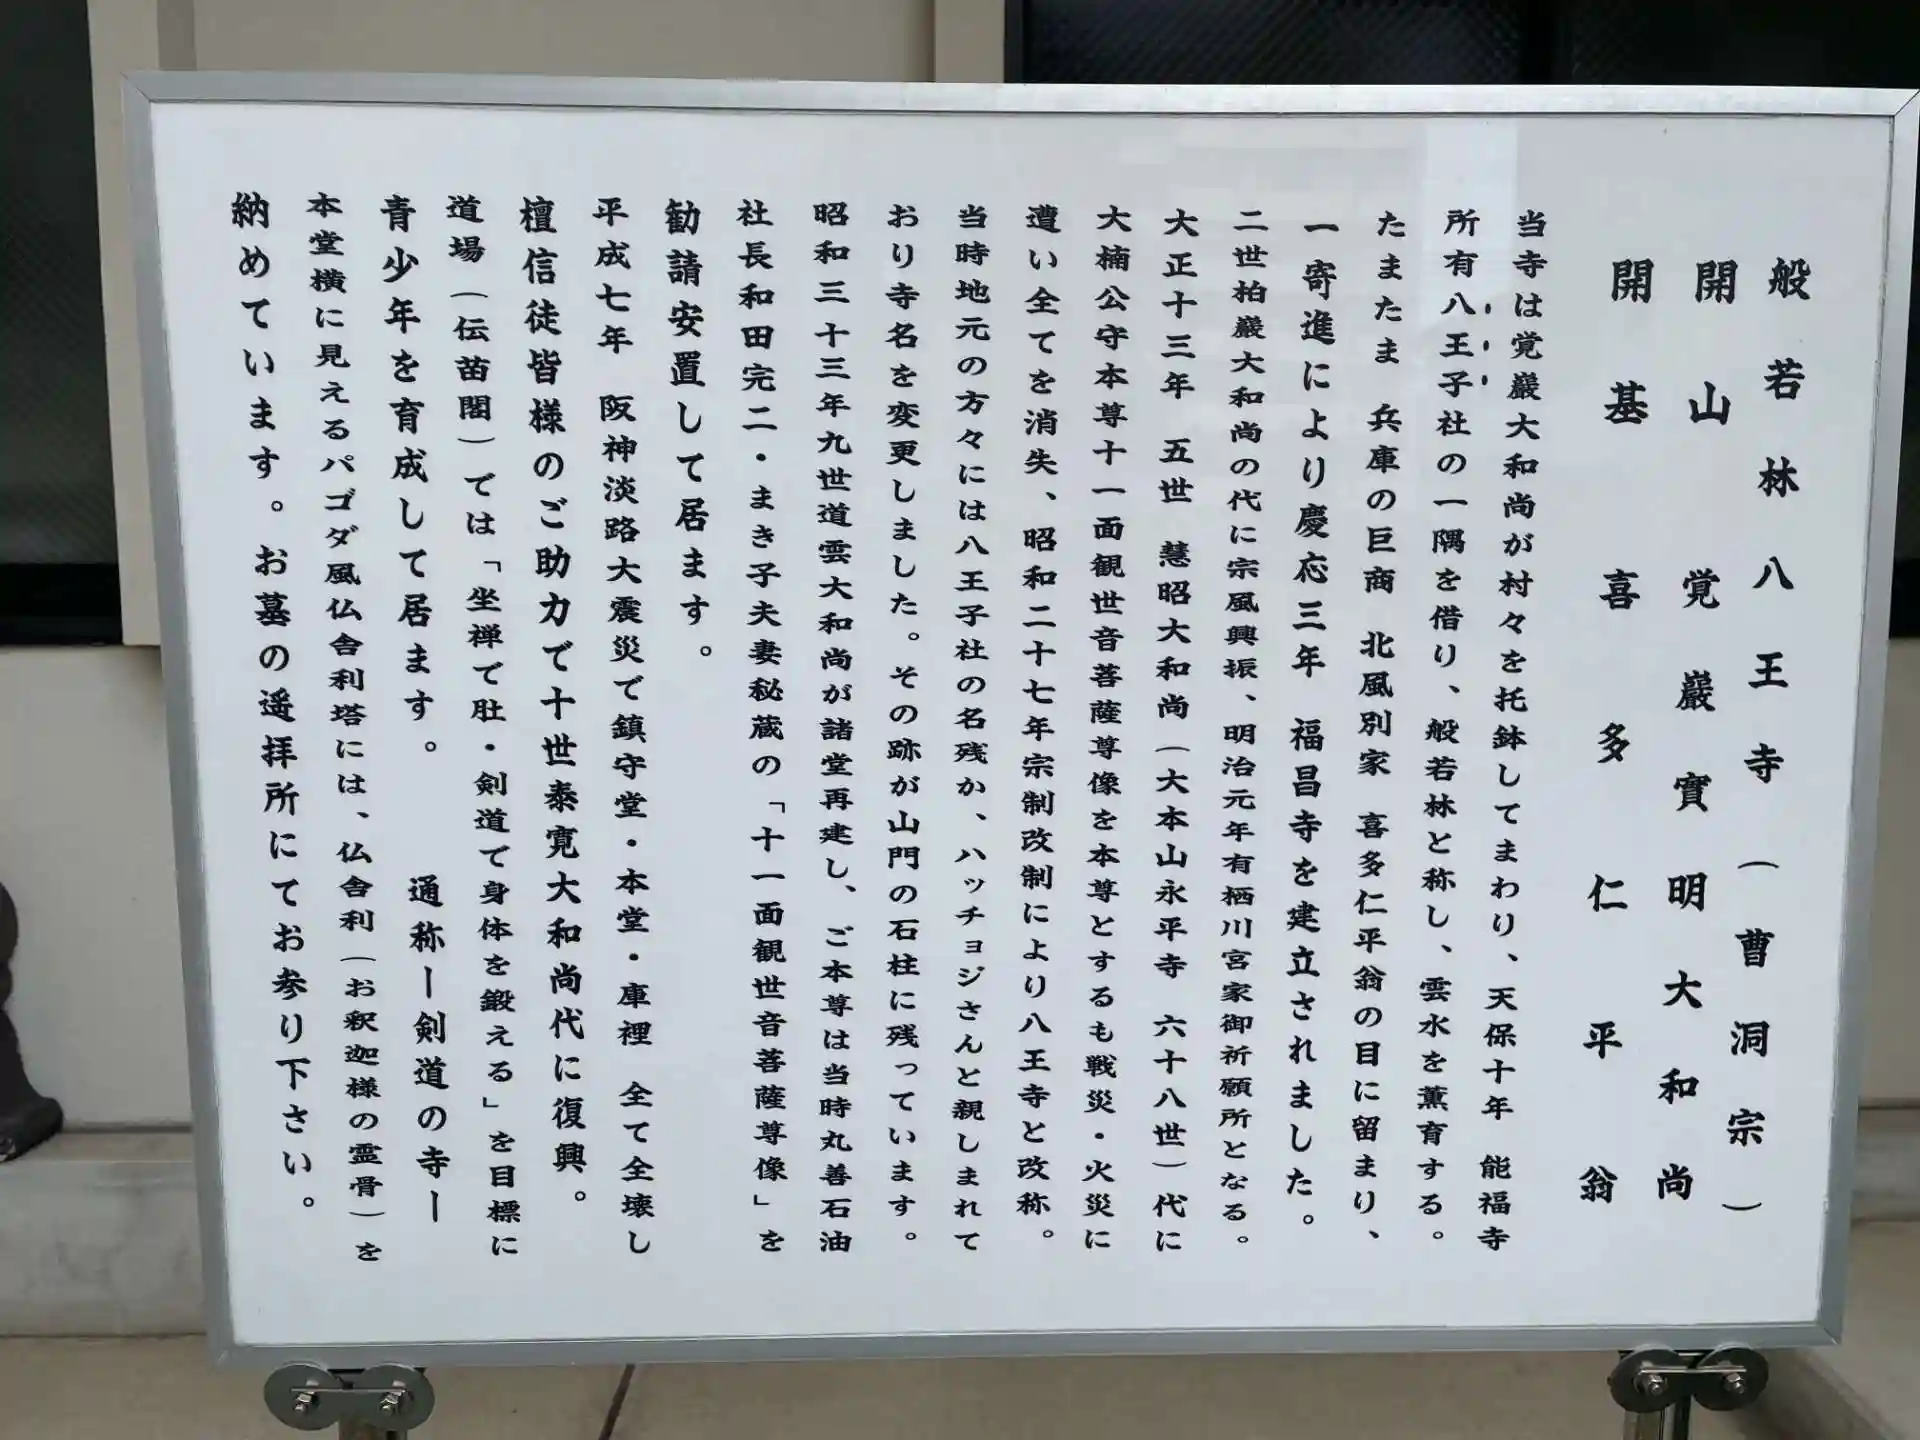 般若林八王寺（曹洞宗）
開山　覚巖實明大和尚
開基　喜多仁平翁
当寺は覚巖大和尚が村々を托鉢してまわり、天保十年　能福寺
所有八王子社の一隅を借り、般若林と称し、雲水を薫育する。
たまたま　兵庫の巨商　北風別家　喜多仁平翁の目に留まり、
一寄進により慶応三年　福昌寺を建立されました。
二世拍巖大和尚の代に宗風興振、明治元年有栖川宮家御祈願所となる。
大正十三年　五世　慧昭大和尚（大本山永平寺　六十八世）代に
大楠公守本尊十一面観世音菩薩尊像を本尊とするも戦災・火災に
遭い全てを消失、昭和二十七年宗制改制により八王寺と改称。
当時地元の方々には八王子社の名残か、ハッチョジさんと親しまれて
おり寺名を変更しました。その跡が山門の石柱に残っています。
昭和三十三年九世道雲大和尚が諸堂再建し、ご本尊は当時丸善石油
社長和田完二・まき子夫妻秘蔵の「十一面観世音菩薩尊像」を
勧請安置して居ます。
平成七年　阪神淡路大震災で鎮守堂・本堂・庫裡　全て全壊し
檀信徒皆様のご助力で十世泰寛大和尚代に復興。
道場（伝苗閣）では「坐禅で肚・剣道で身体を鍛える」を目標に
青少年を育成して居ます。　　通称ー剣道の寺ー
本堂横に見えるパゴダ風仏舎利塔には、仏舎利（お釈迦様の霊骨）を
納めています。お墓の遥拝所にてお参り下さい。